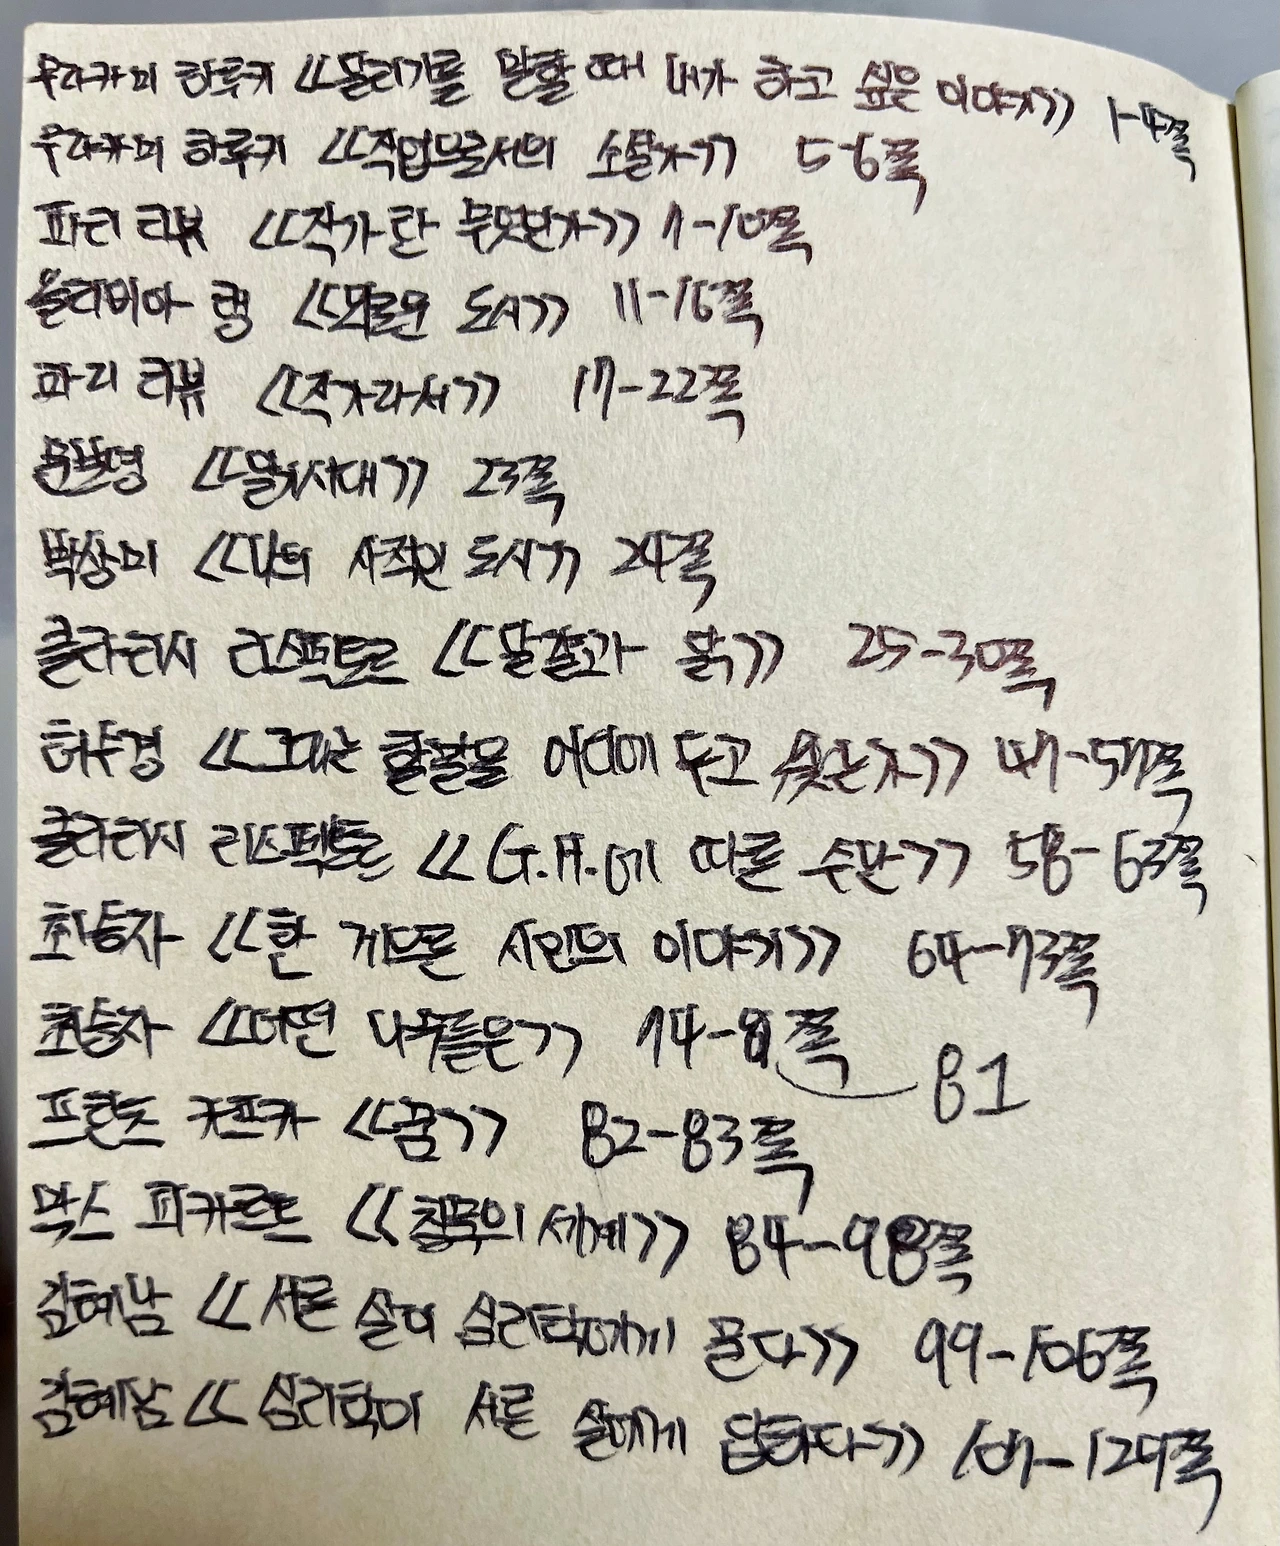 무라카미 하루키 <<달리기를 말할 때 내가 하고 싶은 이야기>> 1-4쪽
무라카미 하루키 <<직업으로서의 소설가>> 5-6쪽
파리 리뷰 <<작가란 무엇인가>> 7-10쪽
올리비아 랭 <<외로운 도시>> 11-16쪽
파리 리뷰 <<작가라서>> 17-22쪽
<<읽기시대>> 23쪽
박상미 <<나의 사적인 도시>> 24쪽
클라리시 리스펙토르 <<달걀과 닭>> 25-30쪽
허수경 <<그대는 할말을 어디에 두고 왔는가>> 47-57쪽
클라리시 리스펙토르 <<G.H.에 따른 수난>> 58-63쪽
최승자 <<한 게으른 시인의 이야기>> 64-73쪽
최승자 <<어떤 나무들은>> 74-81쪽
81
프란츠 카프카 <<꿈>> 82-83쪽
막스 피카르트 <<침묵의 세계>> 84-98쪽
김혜남 <<서른 살이 심리학에게 묻다>> 99-106쪽
김혜남 <<심리학이 서른 살에게 답하다>> 107-129쪽